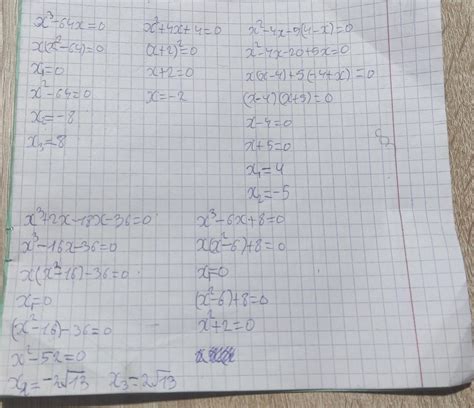 x³-64x=0
x(x²-64)=0
x₁=0
x²-64=0
x₂=-8
x₃=8
x²+4x+4=0
(x+2)²=0
x+2=0
x=-2
x²-4x-5(4-x)=0
x²-4x-20+5x=0
x(x-4)+5(-4+x)=0
(x-4)(x+5)=0
x-4=0
x+5=0
x₁=4
x₂=-5
x³+2x-18x-36=0
x³-16x-36=0
x(x²-16)-36=0
x₁=0
(x²-16)-36=0
x²-52=0
x₂=-2√13 x₃=2√13
x³-6x+8=0
x(x²-6)+8=0
x₁=0
(x²-6)+8=0
x²+2=0